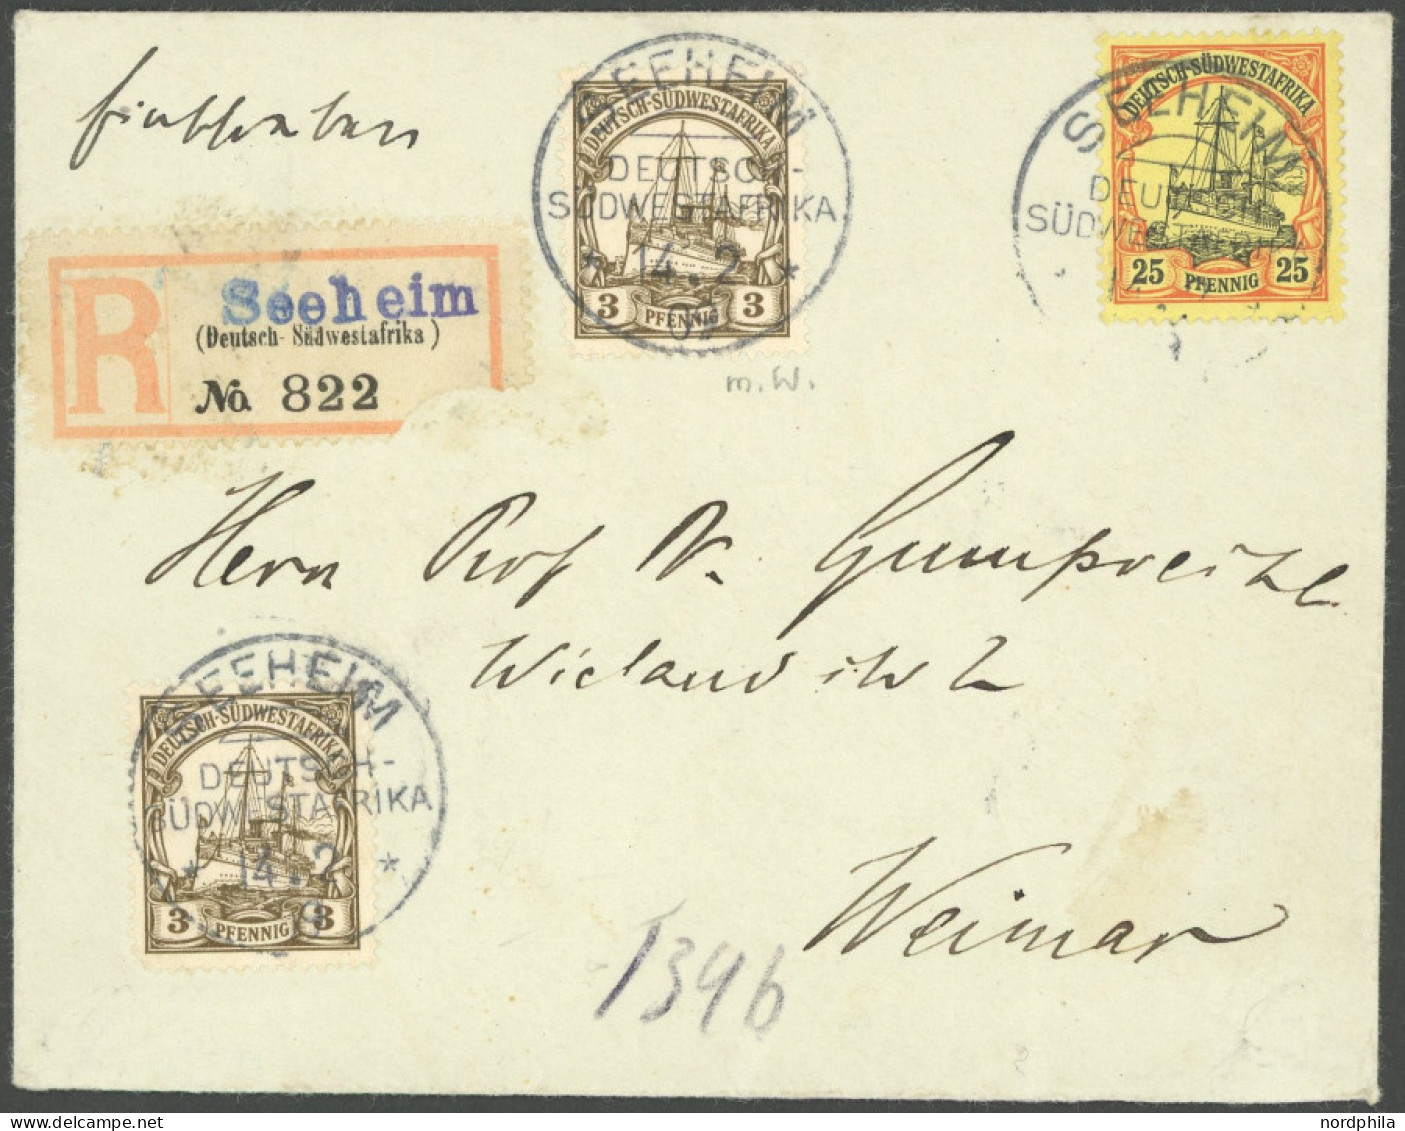 Einschreiben
SEEHEIM
DEUTSCH-
SÜDWESTAFRIKA
* 14.2 *
DEUTSCH-SÜDWESTAFRIKA
3 PFENNIG 3
m.W.
SEEHEIM
DEUTSCH-SÜDWESTAFRIKA
25 PFENNIG 25
R
Seeheim
(Deutsch-Südwestafrika)
No. 822
Herrn Prof Dr. Gumprecht
Wielandstr 2
Weimar
SEEHEIM
DEUTSCH-
SÜDWESTAFRIKA
* 14.2 *
DEUTSCH-SÜDWESTAFRIKA
3 PFENNIG 3
1396
nordphila